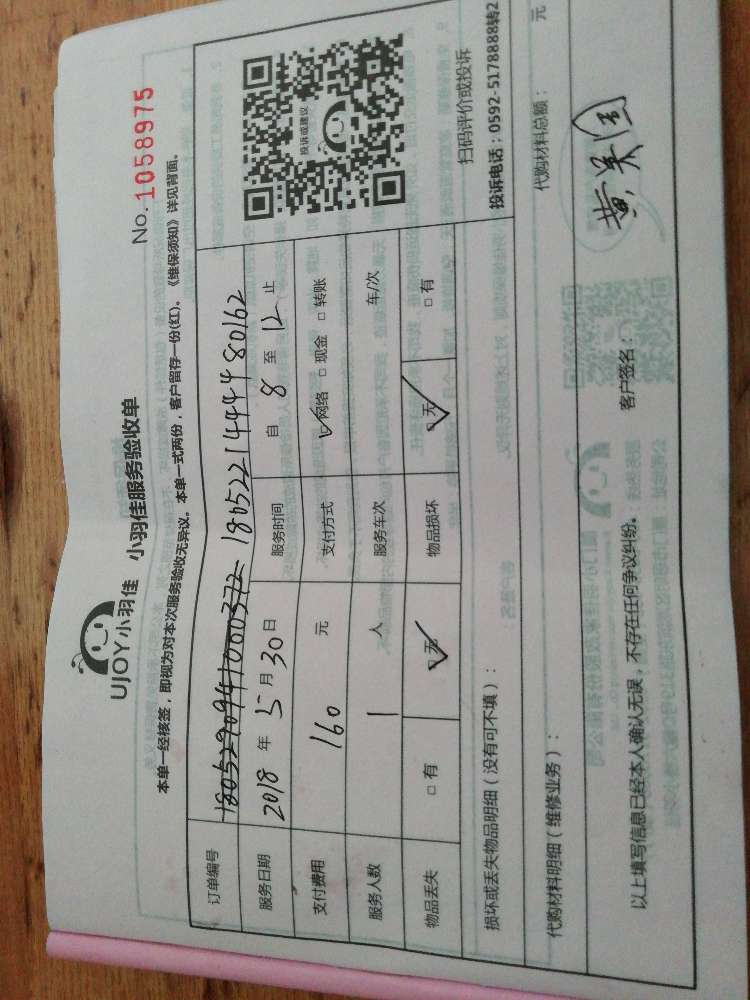 UJOY小羽佳 小羽佳服务验收单
No. 1058975
本单一经核签，即视为对本次服务验收无异议。本单一式两份，客户留存一份(红)。《维保须知》详见背面。
订单编号 1805290941000372 180522144448 0162
服务日期 2018 年 5 月 30 日 服务时间 自 8 至 12 止
支付费用 160 元 支付方式 ☑网络 □ 现金 □ 转账
服务人数 1 人 服务车次 车/次
物品丢失 □ 有 ☑无 物品损坏 ☑无 □ 有
投诉或建议
扫码评价或投诉
投诉电话：0592-5178888转2
损坏或丢失物品明细（没有可不填）：
代购材料明细（维修业务）： 代购材料总额： 元
以上填写信息已经本人确认无误，不存在任何争议纠纷。 客户签名：